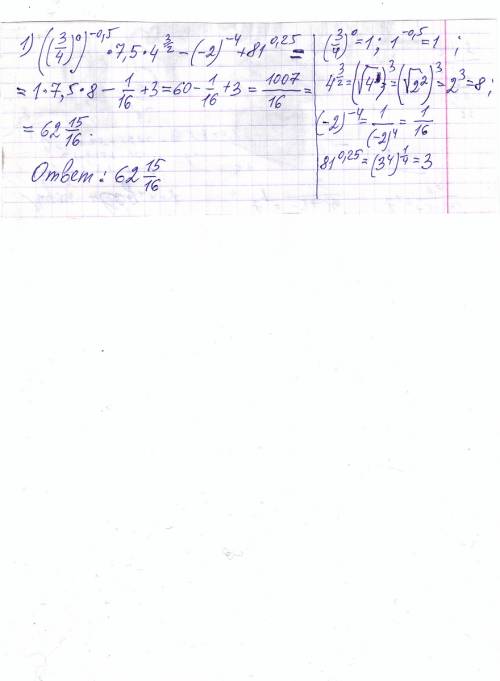 1) ((3/4)^0)^-0,5 · 7,5 · 4^3/2 − (−2)^−4 + 81^0,25 =
= 1 · 7,5 · 8 − 1/16 + 3 = 60 − 1/16 + 3 = 1007/16 =
= 62 15/16.
Ответ: 62 15/16
(3/4)^0 = 1; 1^−0,5 = 1 ;
4^3/2 = (√4)^3 = (√2²)^3 = 2^3 = 8;
(−2)^−4 = 1/(−2)^4 = 1/16
81^0,25 = (3^4)^1/4 = 3